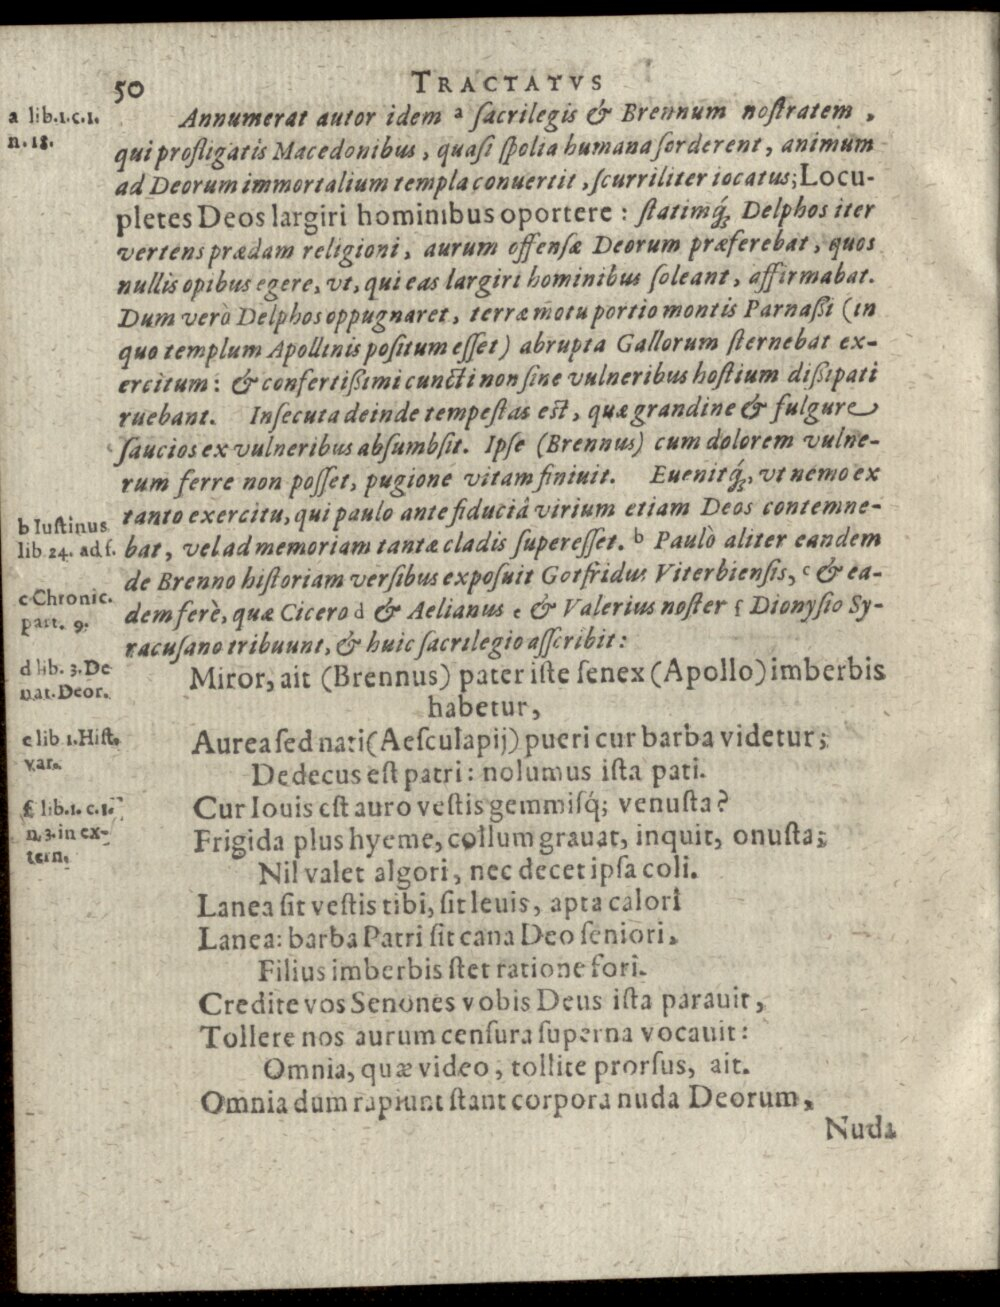 50 TRACTATVS
a lib.1.c.1.
n.18.
Annumerat autor idem a ſacrilegis & Brennum noſtratem,
qui profligatis Macedonibus, quaſi ſpolia humana ſorderent, animum
ad Deorum immortalium templa conuertit, ſcurriliter iocatus; Locu-
pletes Deos largiri hominibus oportere: ſtatimq́; Delphos iter
vertens prædam religioni, aurum offenſæ Deorum præferebat, quos
nullis opibus egere, vt, qui eas largiri hominibus ſoleant, affirmabat.
Dum verò Delphos oppugnaret, terræ motu portio montis Parnaßi (in
quo templum Apollinis poſitum eſſet) abrupta Gallorum ſternebat ex-
ercitum: & confertißimi cuncti non ſine vulneribus hoſtium dißipati
ruebant. Inſecuta deinde tempeſtas eſt, quæ grandine & fulgure
ſaucios ex vulneribus abſumbſit. Ipſe (Brennus) cum dolorem vulne-
rum ferre non poſſet, pugione vitam finiuit. Euenitq́;, vt nemo ex
tanto exercitu, qui paulo ante fiduciâ virium etiam Deos contemne-
bat, vel ad memoriam tantæ cladis ſupereſſet. b Paulò aliter eandem
de Brenno hiſtoriam verſibus expoſuit Gotfridus Viterbienſis, c & ea-
dem ferè, quæ Cicero d & Aelianus e & Valerius noſter f Dionyſio Sy-
racuſano tribuunt, & huic ſacrilegio aſſcribit:
b Iuſtinus
lib 24. ad f.
c Chronic.
part. 9.
d lib. 3. De
nat. Deor.
e lib 1. Hiſt.
var.
f lib.1. c.1.
n.3. in ex-
tern.
Miror, ait (Brennus) pater iſte ſenex (Apollo) imberbis
habetur,
Aurea ſed nati (Aeſculapij) pueri cur barba videtur;
Dedecus eſt patri: nolumus iſta pati.
Cur Iouis eſt auro veſtis gemmiſq́; venuſta?
Frigida plus hyeme, collum grauat, inquit, onuſta;
Nil valet algori, nec decet ipſa coli.
Lanea ſit veſtis tibi, ſit leuis, apta calori
Lanea: barba Patri ſit cana Deo ſeniori.
Filius imberbis ſtet ratione fori.
Credite vos Senones vobis Deus iſta parauit,
Tollere nos aurum cenſura ſuperna vocauit:
Omnia, quæ video, tollite prorſus, ait.
Omnia dum rapiunt ſtant corpora nuda Deorum,
Nuda